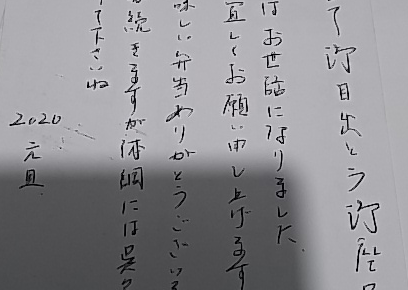 て御目出とう御座
はお世話になりました
宜しくお願い申し上げます
味しい弁当ありがとうござい
続きますが体調には
て下さいね
2020
元旦